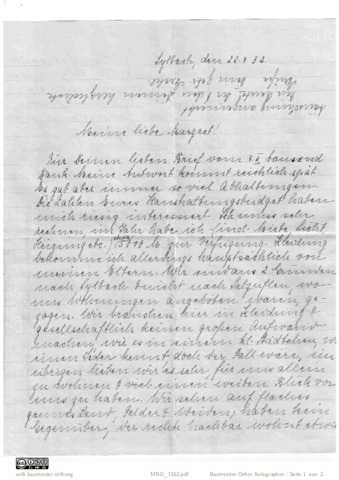 Sylbach, den 22.4.32.
Meine liebe Margret!
Für Deinen lieben Brief vom 4.II tausend
Dank. Meine Antwort kommt reichlich spät
Es gab aber immer so viel Abhaltungen.
Die Zahlen Eures Haushaltungsbudget haben
mich riesig interessiert. Ich muss sehr
rechnen, im Jahr habe ich
M. zur Verfügung. Kleidung
bekomme ich allerdings hauptsächlich von
meinen Eltern. Wir sind aus 2 Gründen
nach Sylbach & nicht nach Salzuflen, wo
uns Wohnungen angeboten waren, ge-
zogen. Wir brauchen hier in Kleidung &
gesellschaftlich keinen großen Aufwand
machen, wie es in einem kl. Städtchen, wo
einen jeder kennt doch der Fall wäre, im
übrigen lieben wir es sehr, für uns allein
zu wohnen & einen weiten Blick vor
uns zu haben. Wir sehen auf flaches
Felder & Weiden, haben kein
Gegenüber, der rechte Nachbar wohnt etwa
willi baumeister stiftung
MBO_1552.pdf
Baumeister-Oehm Autographen : Seite 1 von 2